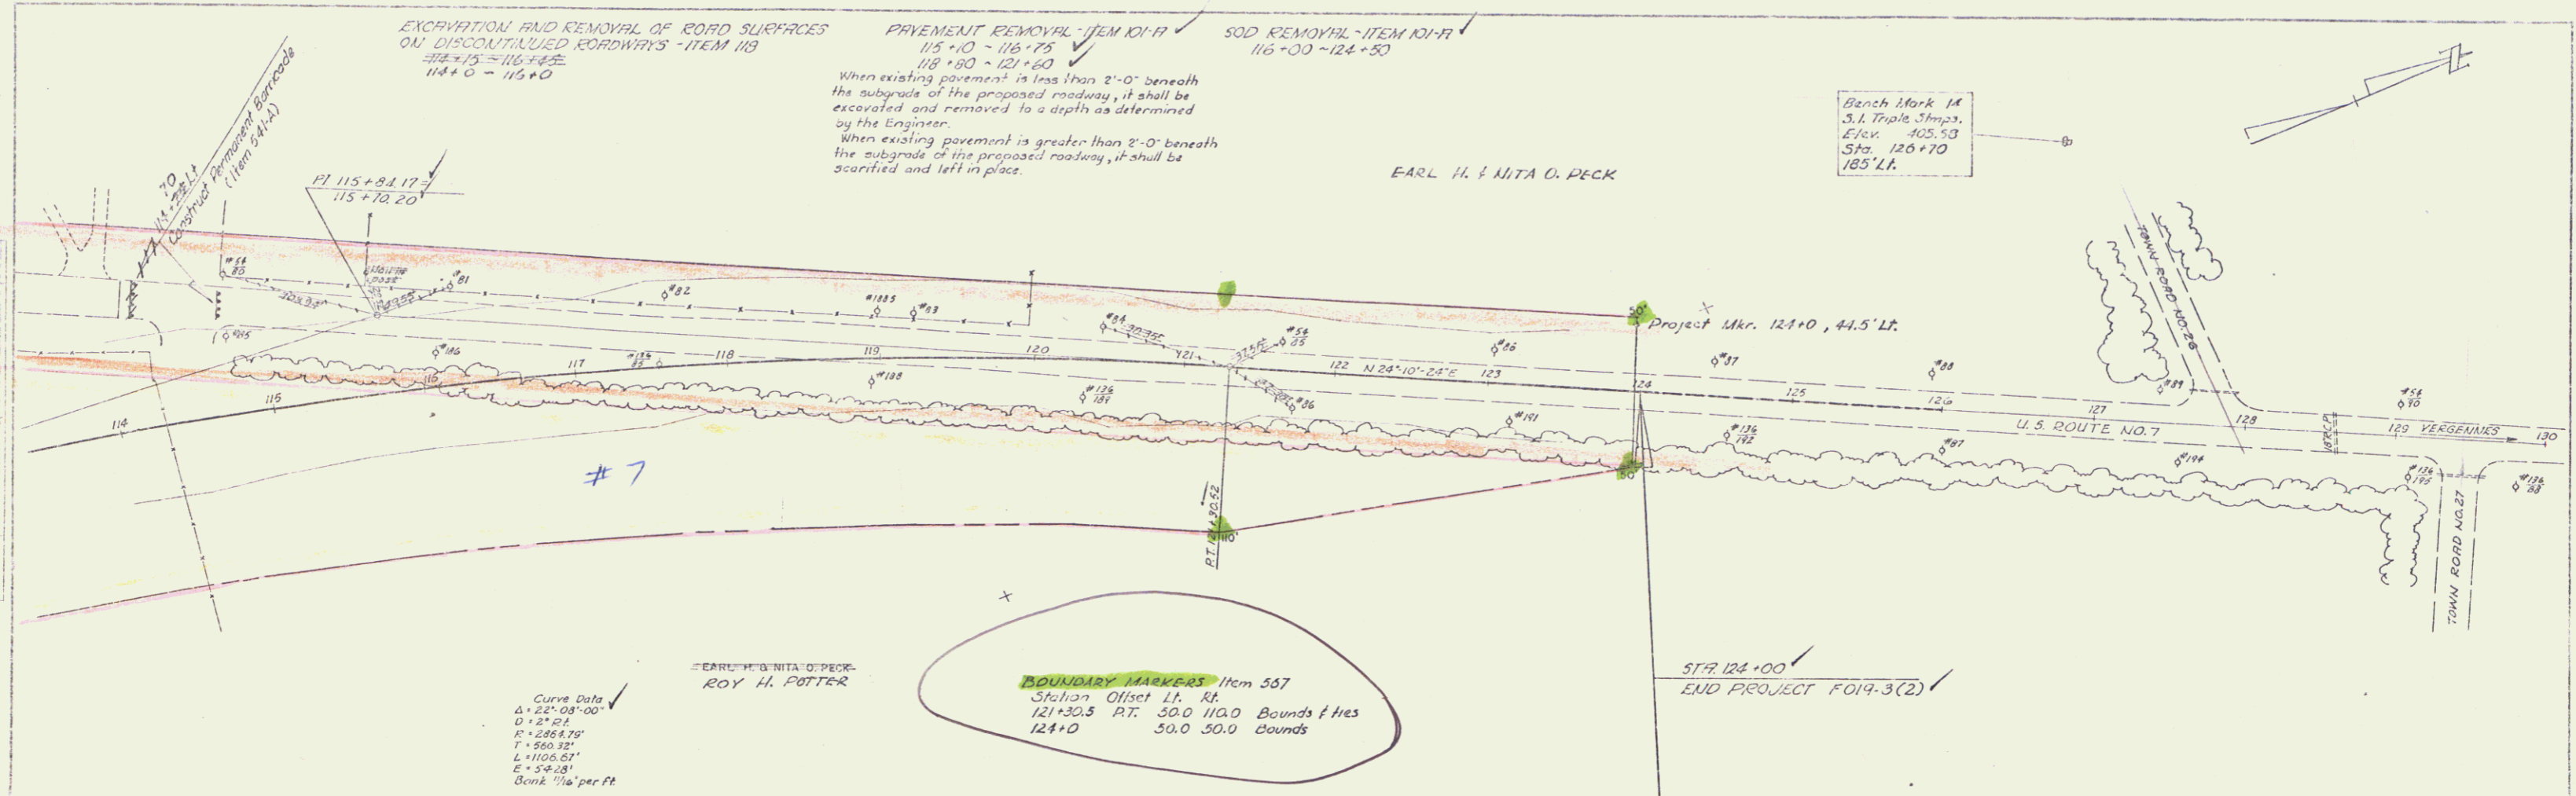 EXCAVATION AND REMOVAL OF ROAD SURFACES
ON DISCONTINUED ROADWAYS - ITEM 118
114+15 ~ 116+45
114+0 ~ 116+0
PAVEMENT REMOVAL - ITEM 101-A
115+10 ~ 116+75
118+80 ~ 121+60
When existing pavement is less than 2'-0" beneath
the subgrade of the proposed roadway, it shall be
excavated and removed to a depth as determined
by the Engineer.
When existing pavement is greater than 2'-0" beneath
the subgrade of the proposed roadway, it shall be
scarified and left in place.
SOD REMOVAL - ITEM 101-A
116+00 ~ 124+50
Bench Mark 14
S.I. Triple Stmps.
Elev. 405.58
Sta. 126+70
185' Lt.
N
EARL H. & NITA O. PECK
70
Construct Permanent Barricade
(Item 541-A)
PI 115+84.17=
115+70.20
TOWN ROAD NO. 26
#54
85
#81
#82
#1885
#83
#84
#54
85
#86
50'
Project Mkr. 124+0, 44.5' Lt.
#87
#88
#89
#54
90
#185
#186
#136
#188
#136
189
#86
#191
#136
192
#87
#194
#136
195
#136
88
114
115
116
117
118
119
120
121
122
N 24°-10'-24" E
123
124
125
126
127
128
129
130
U.S. ROUTE NO. 7
VERGENNES
18" RCP
50'
# 7
P.T. 121+30.52
110'
TOWN ROAD NO. 27
EARL H. & NITA O. PECK
ROY H. POTTER
Curve Data
Δ = 22°-08'-00"
D = 2° Rt.
R = 2864.79'
T = 560.32'
L = 1106.67'
E = 54.28'
Bank 11/16" per ft.
BOUNDARY MARKERS Item 567
Station Offset Lt. Rt.
121+30.5 P.T. 50.0 110.0 Bounds & ties
124+0 50.0 50.0 Bounds
STA. 124+00
END PROJECT F019-3(2)